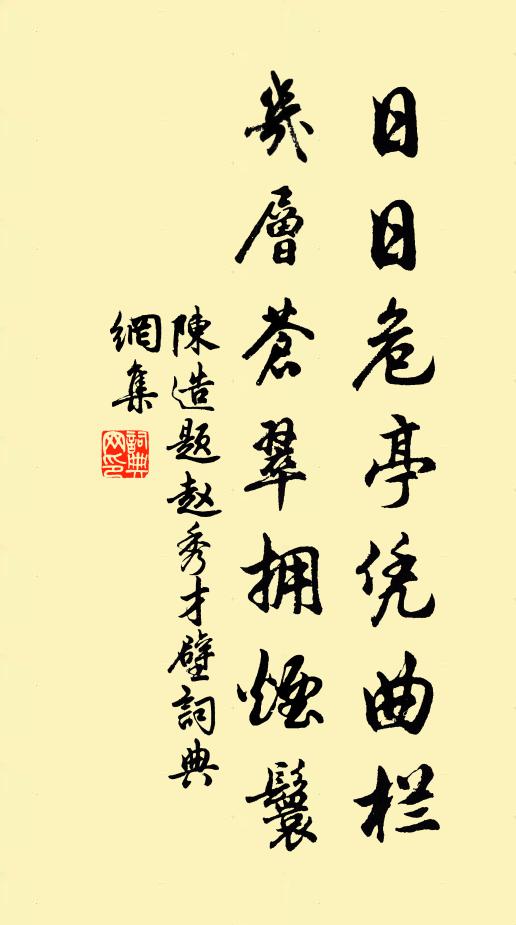 日日危亭凭曲栏
几層苍翠拥煙鬟
陳造题赵秀才壁詞典
網集
詞典網印